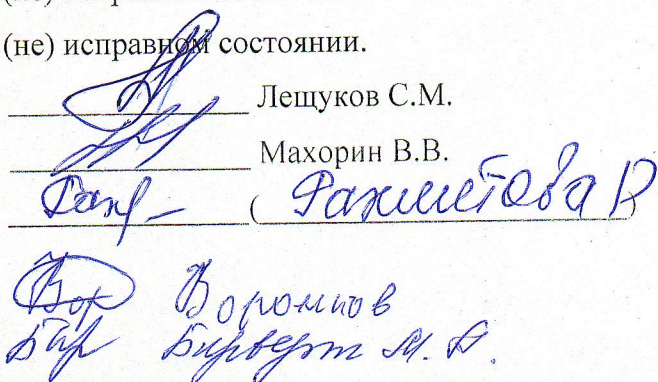 (не) исправном состоянии.
Лещуков С.М.
Махорин В.В.
Рахм (Рахметова Р)
Вор Воронков
Бир М. А.